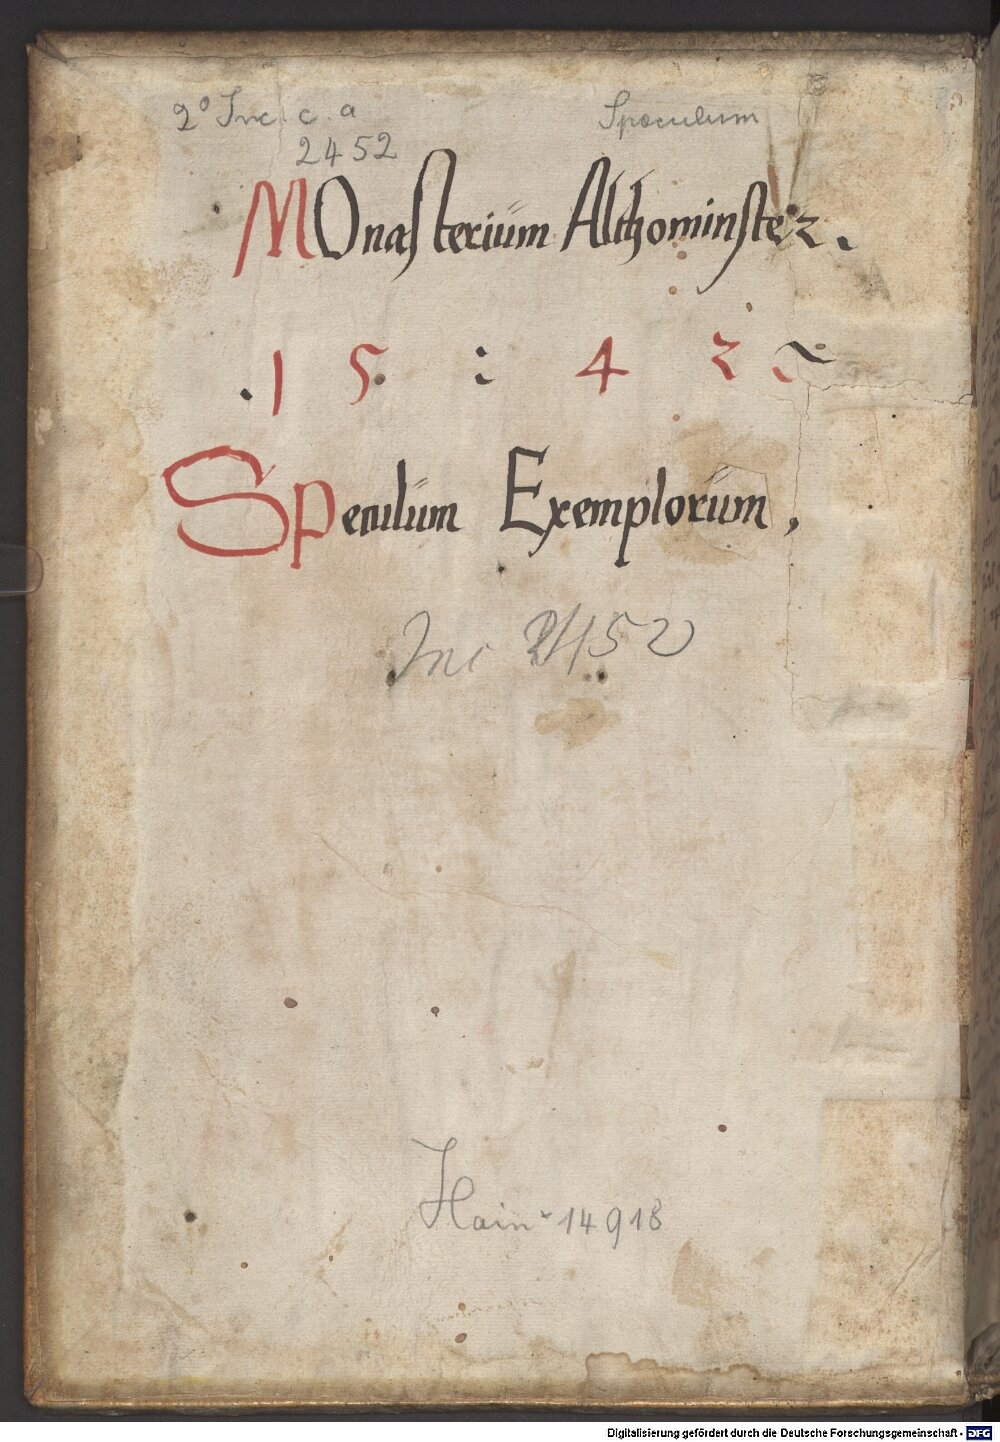 2° Inc. c. a. Speculum
2452
MOnasterium Althominster.
.15:42
Speculum Exemplorum,
Inc 2452
Hain * 14918
Digitalisierung gefördert durch die Deutsche Forschungsgemeinschaft - DFG